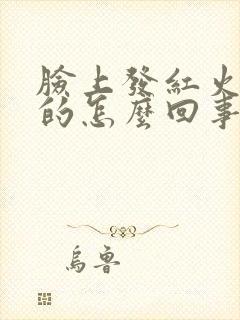 臉上發紅火
的怎麼回事
烏魯